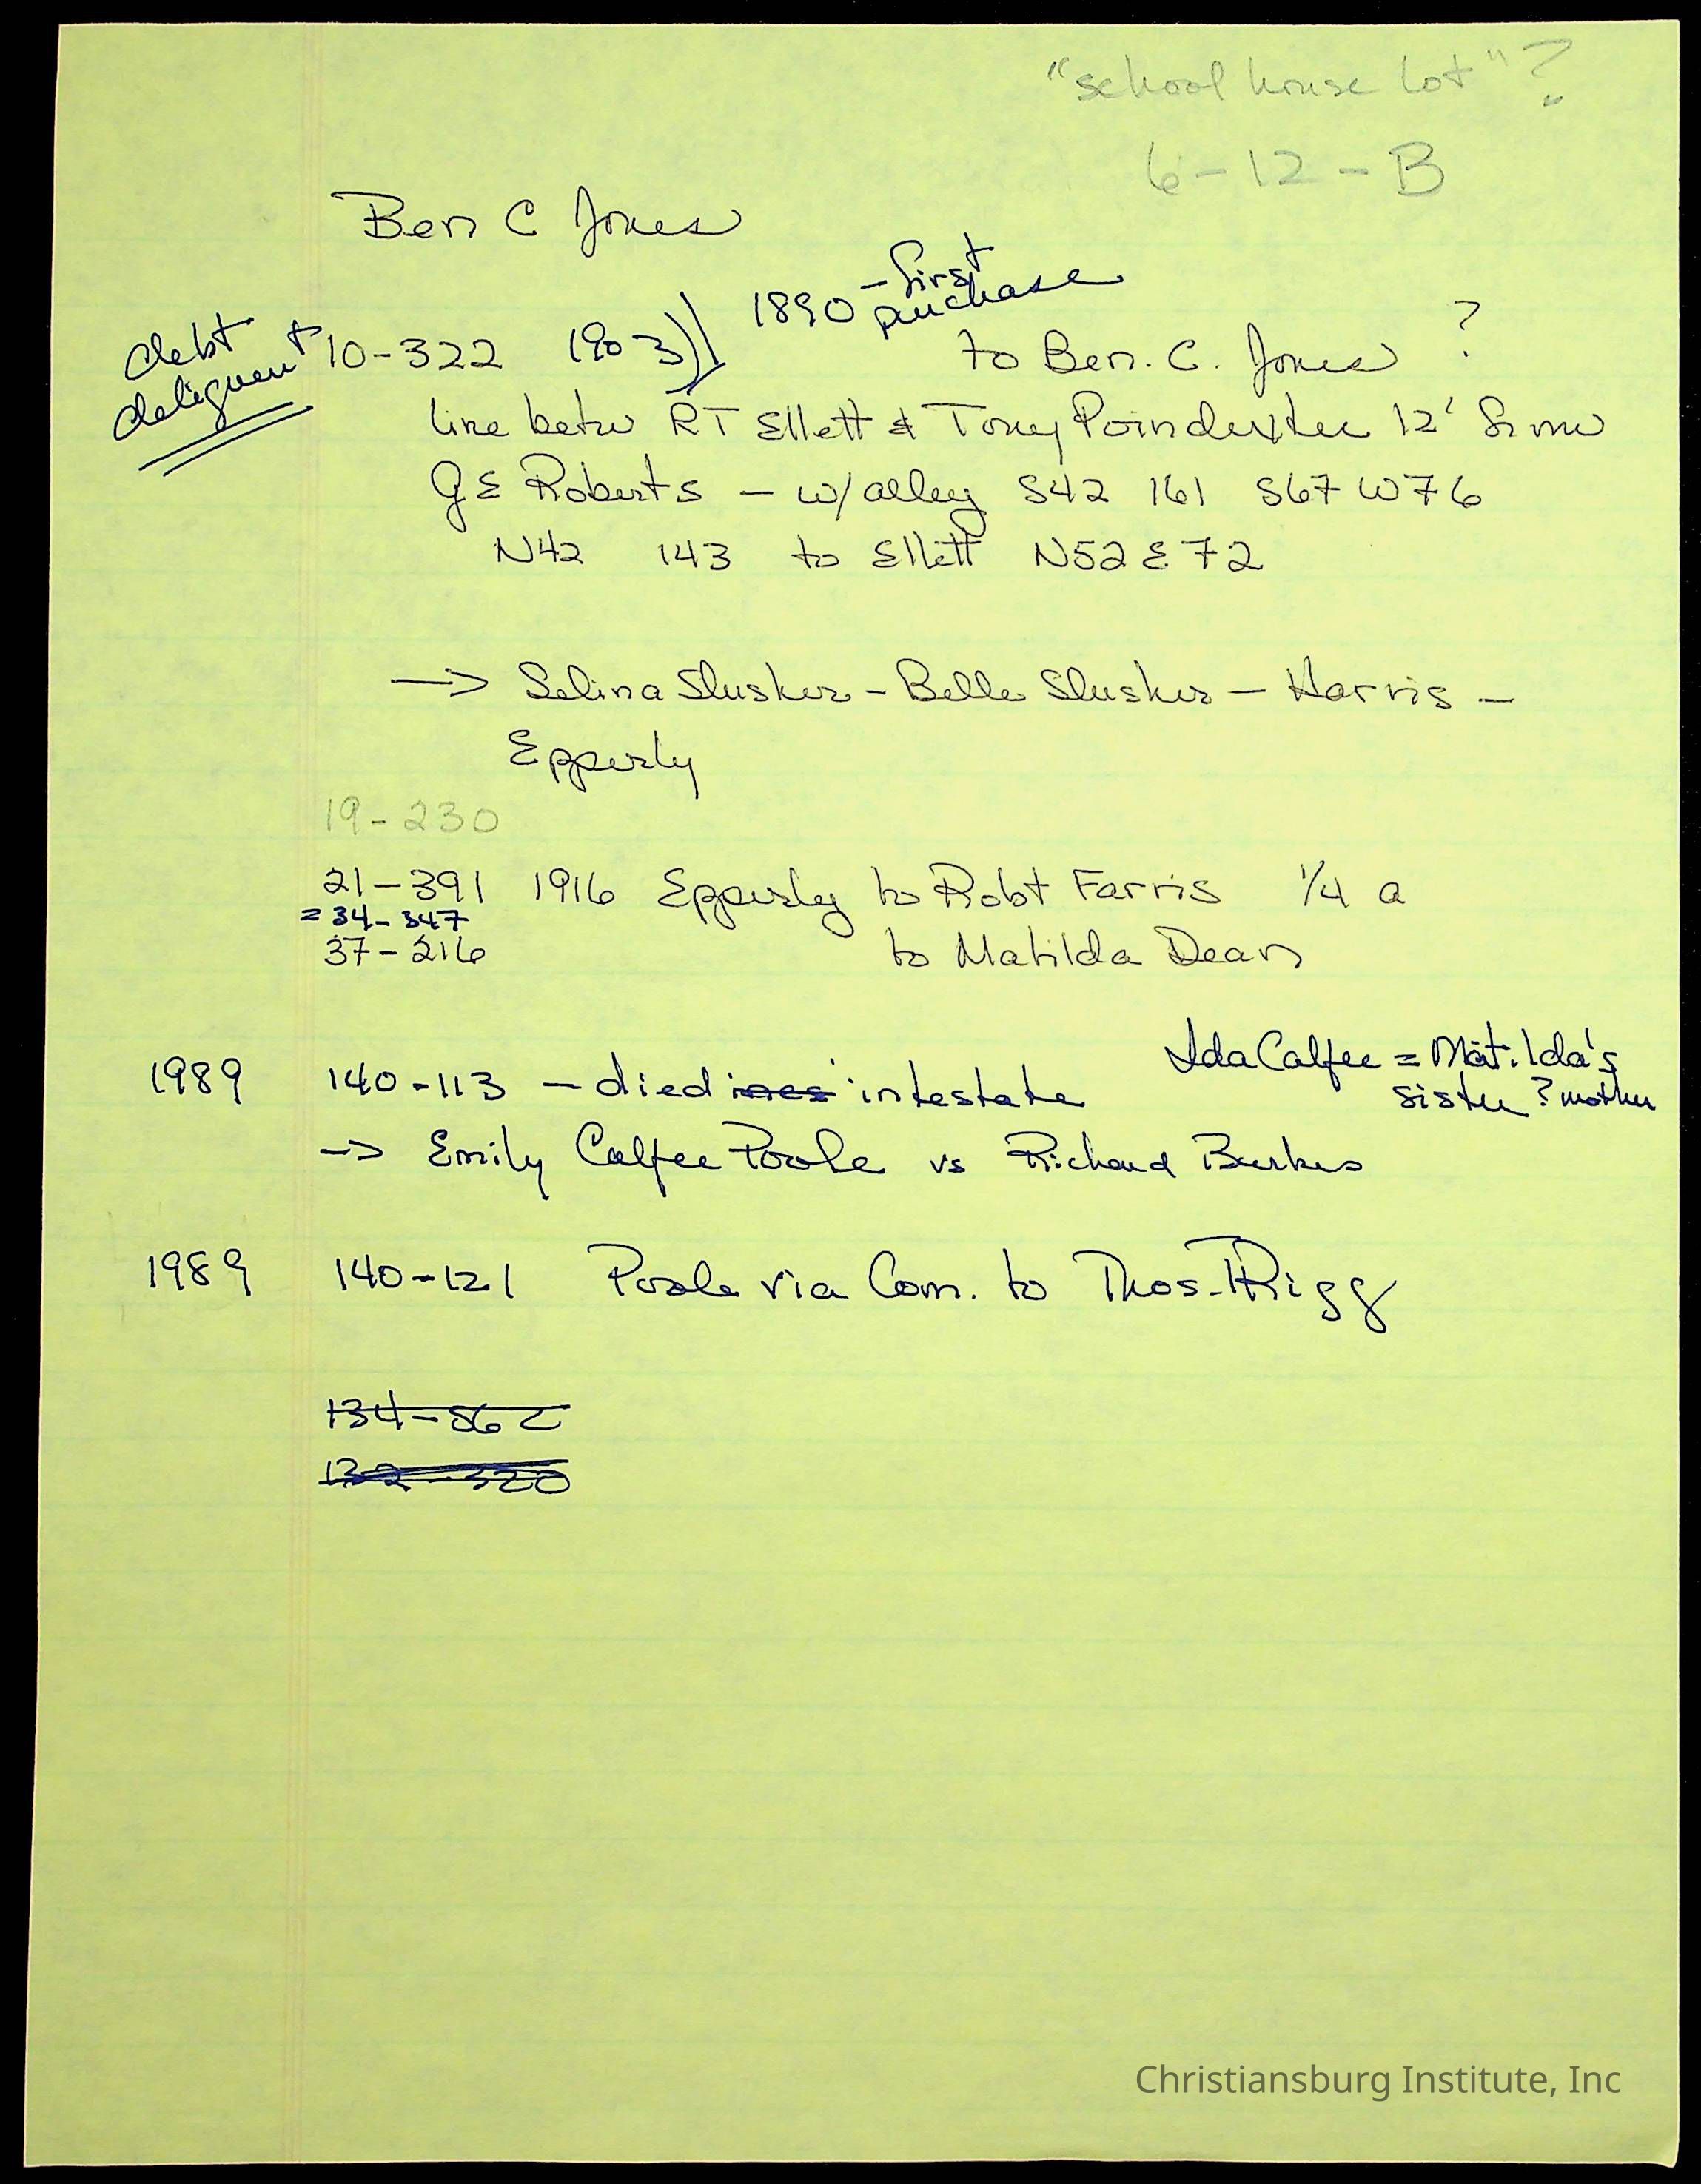 "school house lot" ?
6-12-B
Ben C Jones
1890 - first purchase
debt deliquent
10-322 (1903) to Ben. C. Jones ?
line betw RT Ellett & Tony Poindexter 12' from
GE Roberts - w/alley S42 161 S67W76
N42 143 to Ellett N52E72
→ Selina Slusher - Belle Slusher - Harris -
Epperly
19-230
21-391 1916 Epperly to Robt Farris 1/4 a
= 34-347
37-216 to Matilda Dean
Ida Calfee = Matilda's
sister ? mother
1989 140-113 - died intestate
→ Emily Calfee Poole vs Richard Burkes
1989 140-121 Poole via Com. to Thos. Rigg
134-562
132-320
Christiansburg Institute, Inc